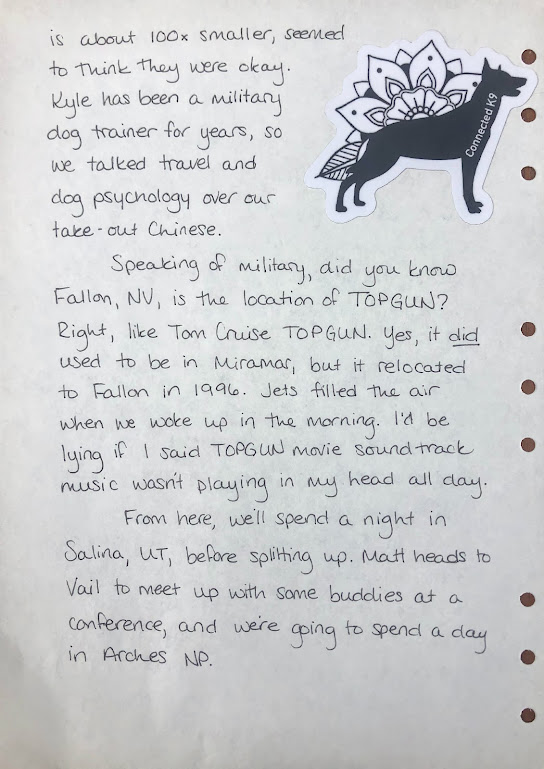 is about 100x smaller, seemed
to think they were okay.
Kyle has been a military
dog trainer for years, so
we talked travel and
dog psychology over our
take-out Chinese.
Connected K9
Speaking of military, did you know
Fallon, NV, is the location of TOPGUN?
Right, like Tom Cruise TOPGUN. Yes, it did
used to be in Miramar, but it relocated
to Fallon in 1996. Jets filled the air
when we woke up in the morning. I'd be
lying if I said TOPGUN movie soundtrack
music wasn't playing in my head all day.
From here, we'll spend a night in
Salina, UT, before splitting up. Matt heads to
Vail to meet up with some buddies at a
conference, and we're going to spend a day
in Arches NP.